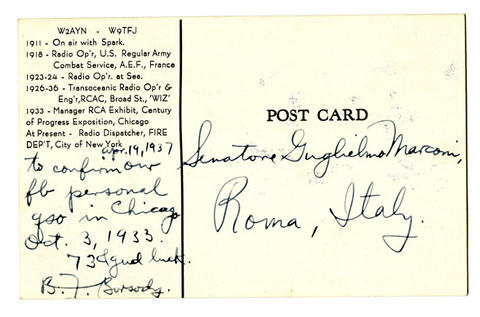 W2AYN - W9TFJ
1911 - On air with Spark.
1918 - Radio Op'r, U.S. Regular Army
Combat Service, A.E.F., France
1923-24 - Radio Op'r. at Sea.
1926-36 - Transoceanic Radio Op'r &
Eng'r, RCAC, Broad St., 'WIZ'
1933 - Manager RCA Exhibit, Century
of Progress Exposition, Chicago
At Present - Radio Dispatcher, FIRE
DEP'T, City of New York
Apr. 19, 1937
to confirm our
fb personal
qso in Chicago
Oct. 3, 1933.
73 & gud luck.
B. F.
POST CARD
Senatore Guglielmo Marconi,
Roma, Italy.